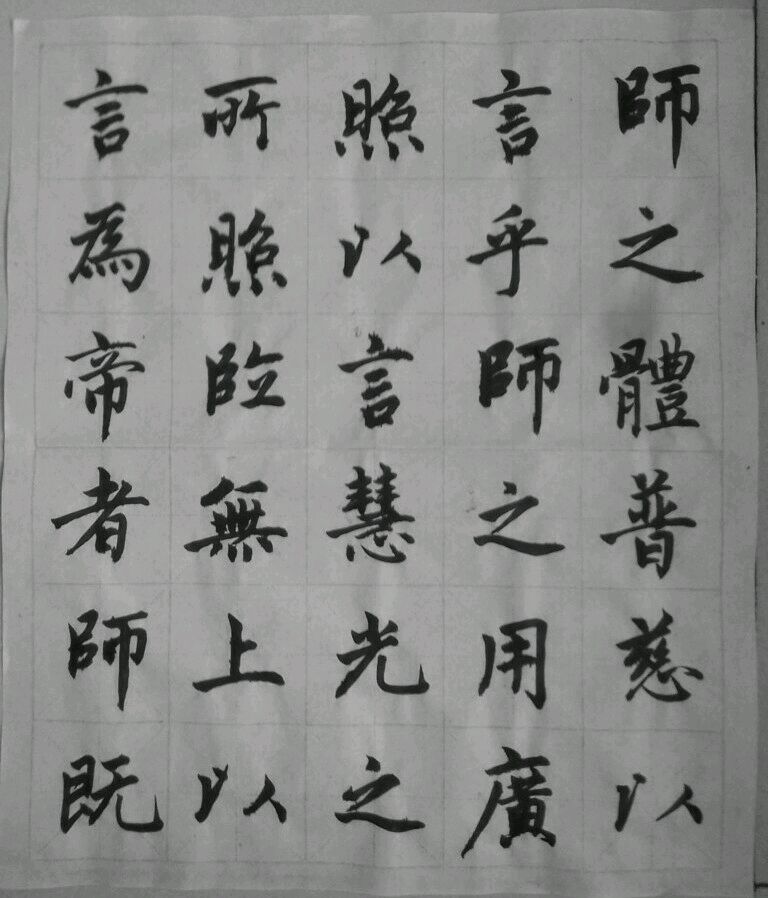 師之體普慈以
言乎師之用廣
照以言慧光之
所照臨無上以
言為帝者師既